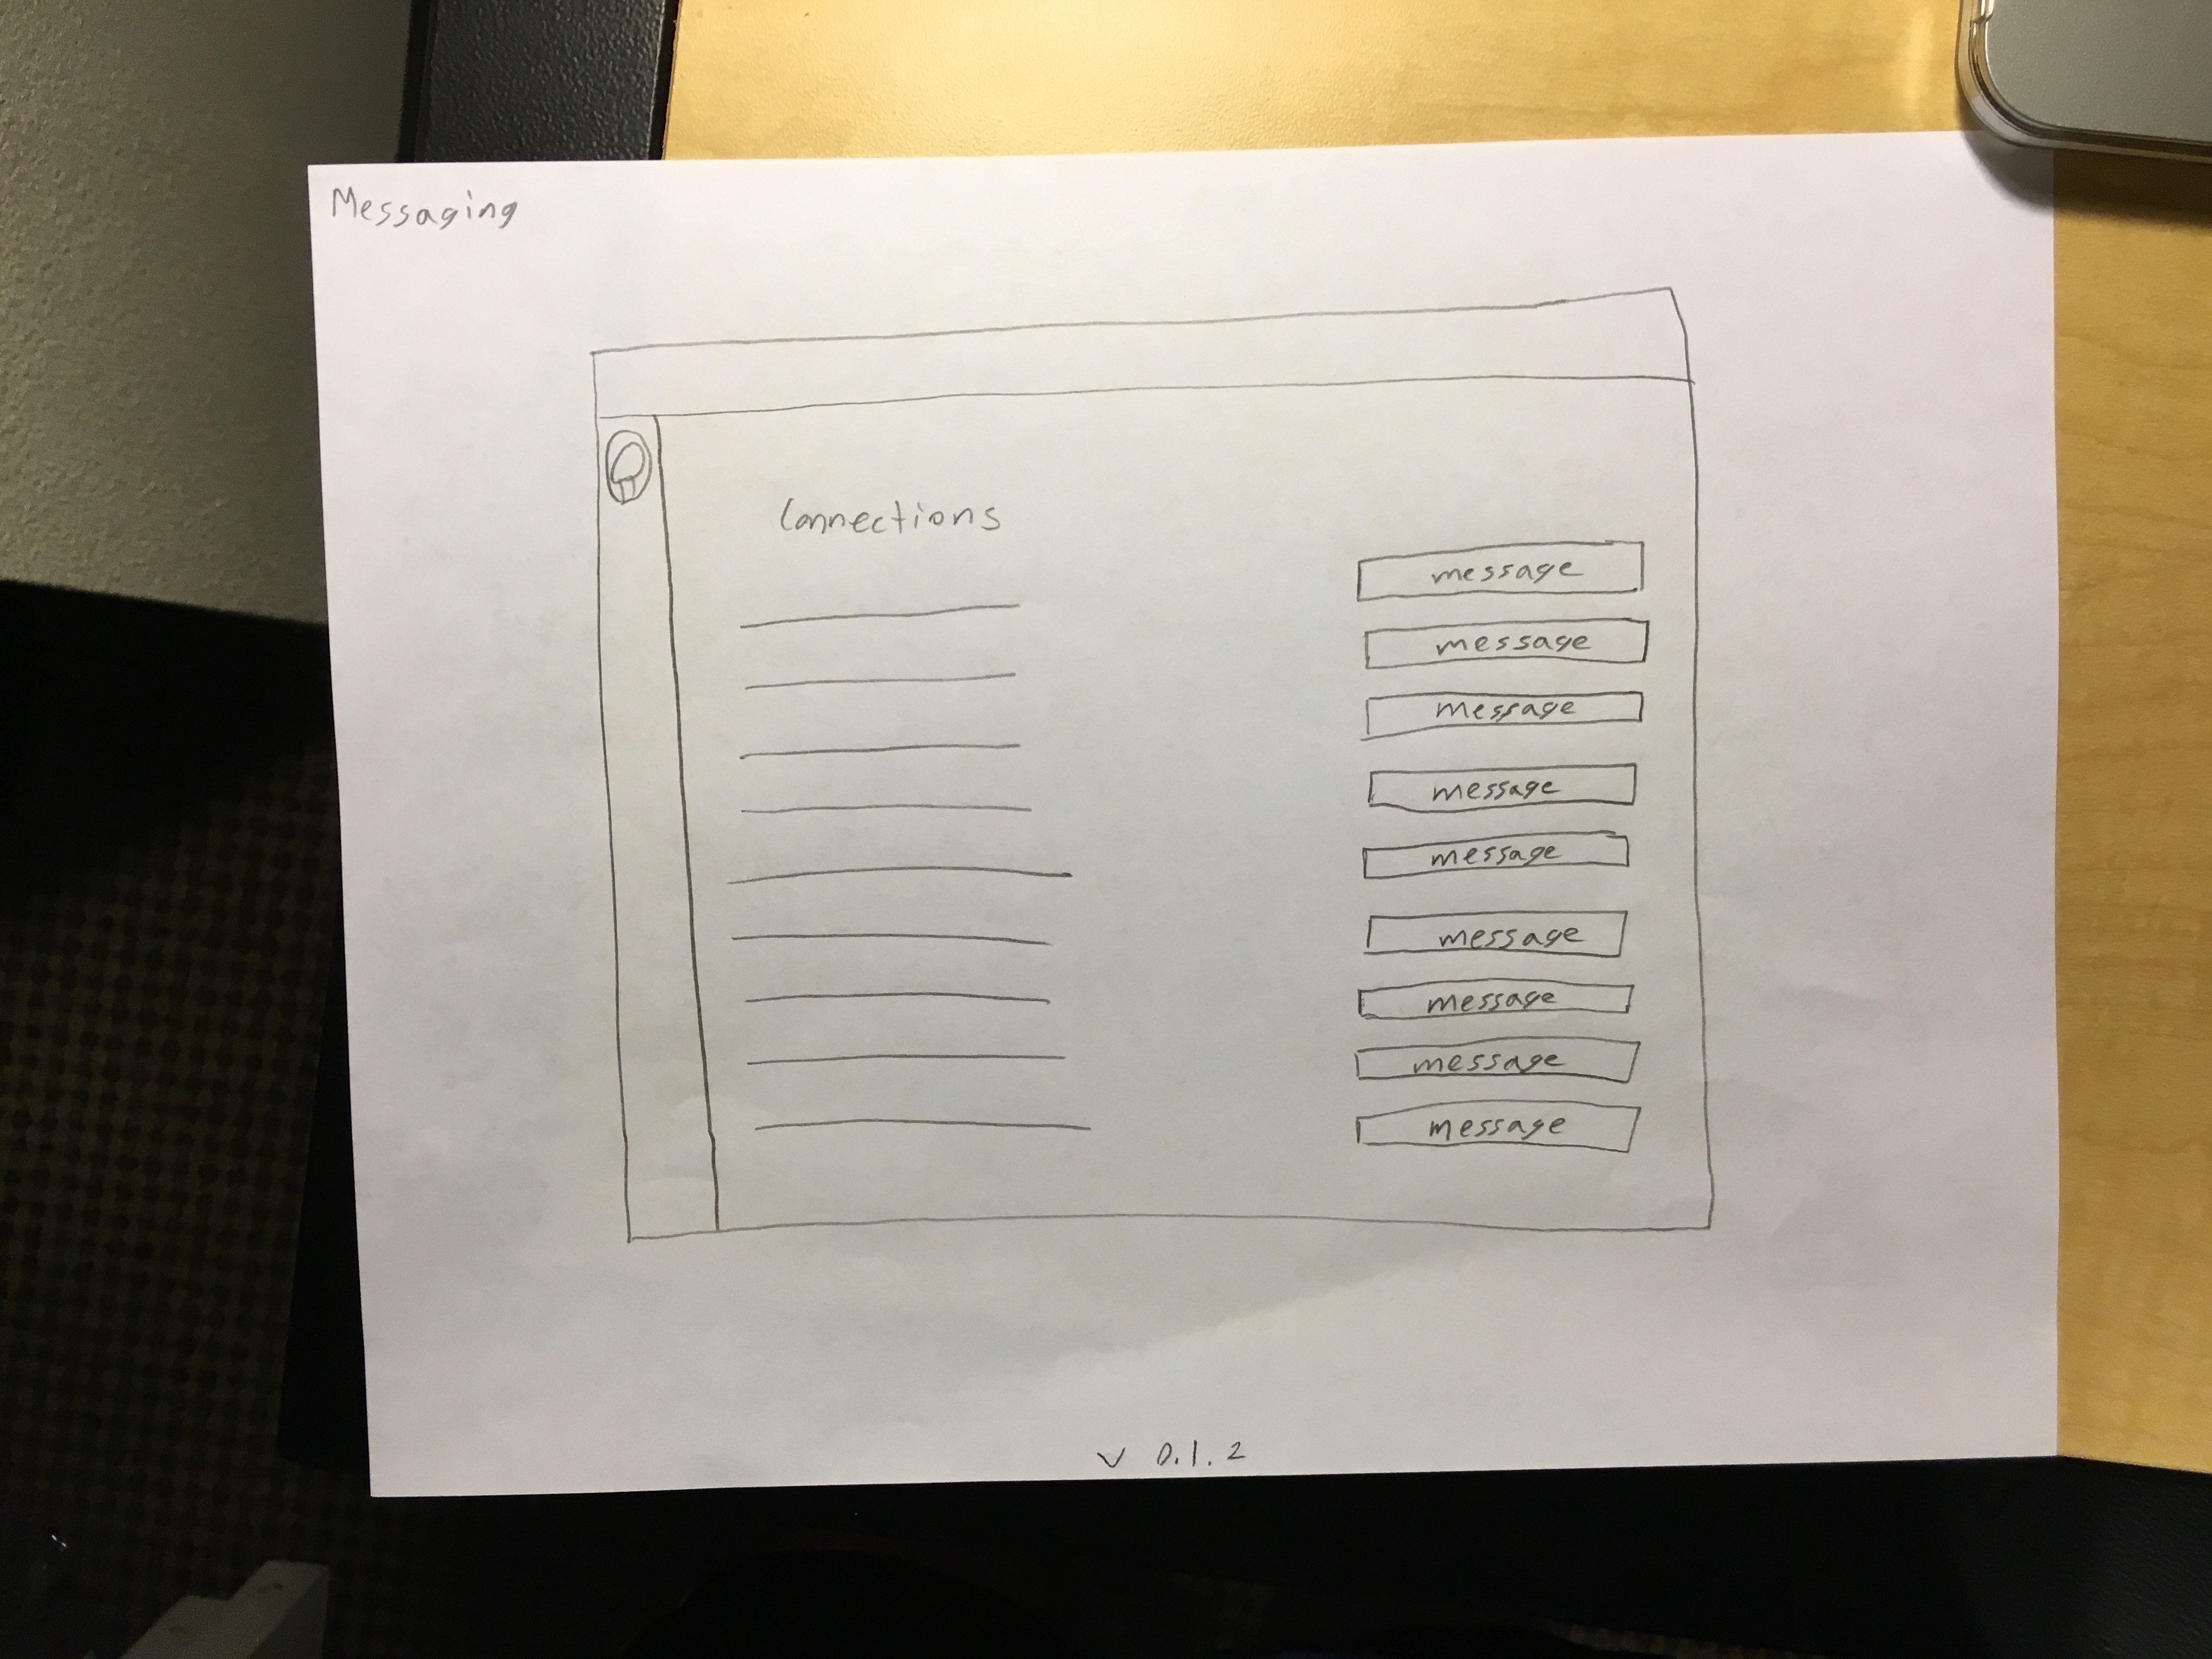 Messaging
Connections
message
message
message
message
message
message
message
message
message
v 0.1.2